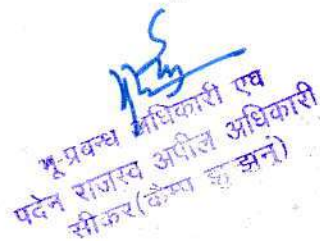 भू-प्रबन्ध अधिकारी एवं
पदेन राजस्व अपील अधिकारी
सीकर(कैम्प झुन्झनूं)